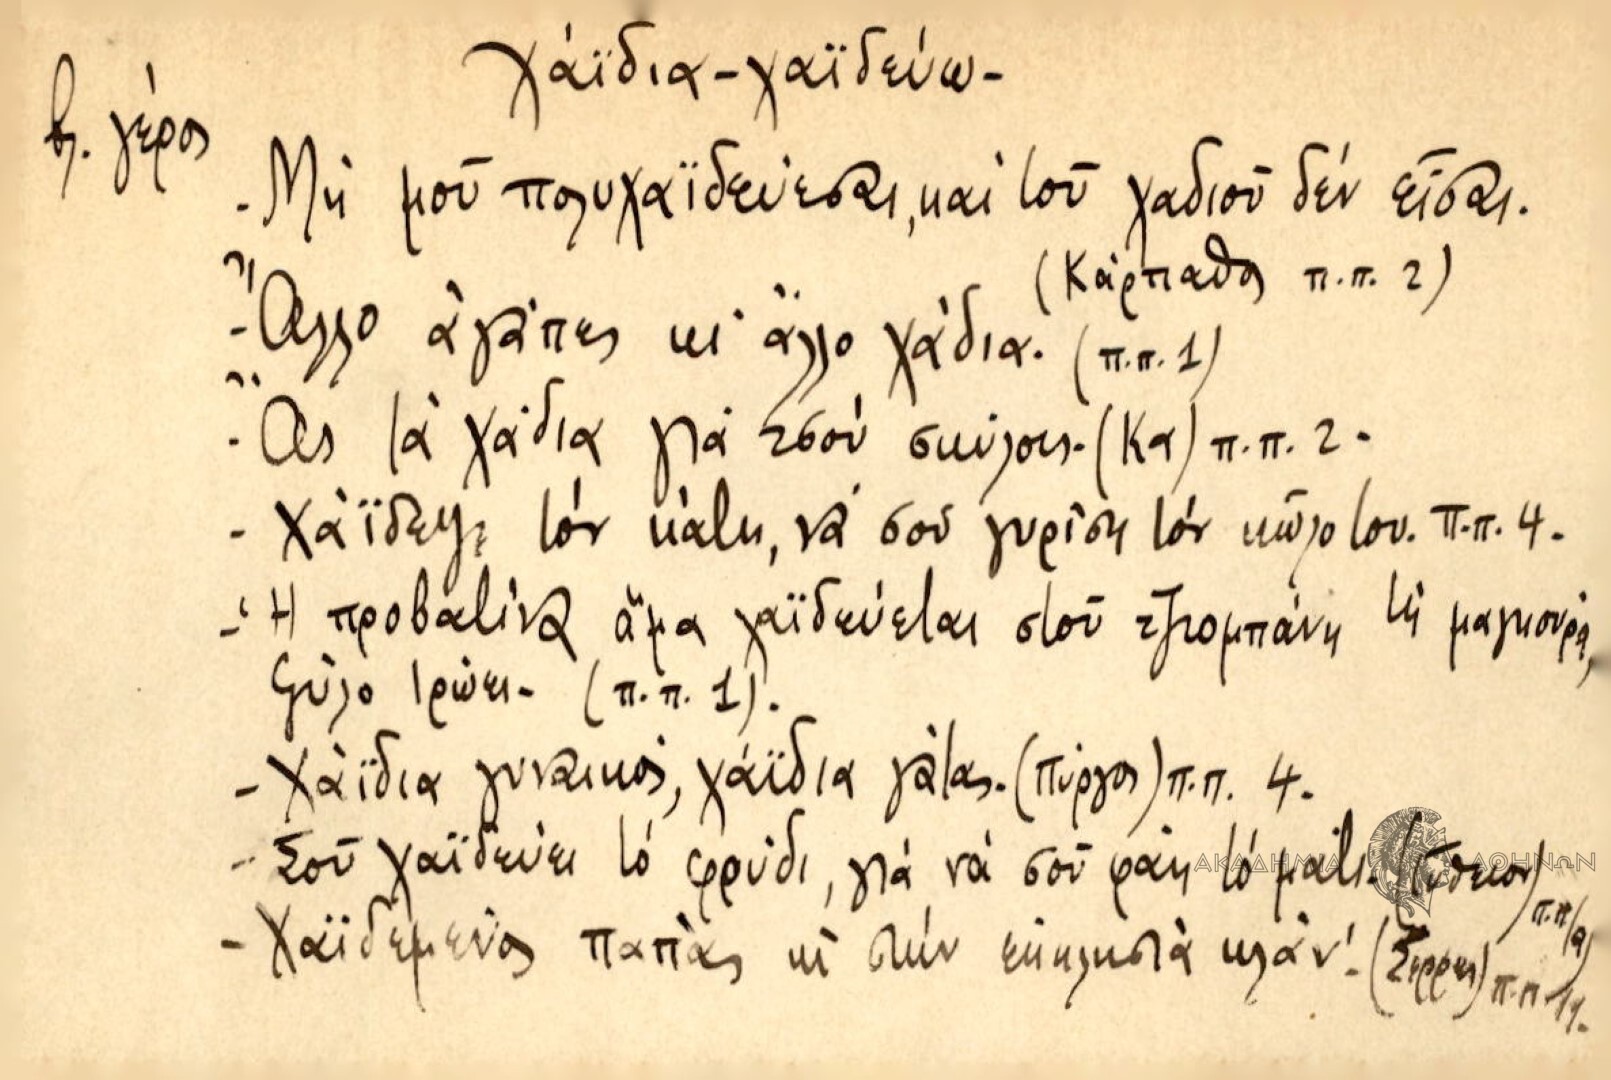 χάϊδια - χαϊδεύω -
βλ. γέρος
- Μή μοῦ πολυχαϊδεύεσαι, καί τοῦ χαδιοῦ δέν εἶσαι.
(Κάρπαθος π.π. 2)
- Ἄλλο ἀγάπες κι' ἄλλο χάδια. (π.π. 1)
- Ἄς τά χάδια γιά τσού σκύλους. (Κα) π.π. 2 -
- Χάϊδευε τόν κάτη, νά σού γυρίση τόν κῶλο του. π.π. 4.
- Ἡ προβατίνα ἅμα χαϊδεύεται στοῦ τζιομπάνη τή μαγκούρα,
ξύλο τρώει - (π.π. 1).
- Χάϊδια γυναικός, χάϊδια γάτας. (Πύργος) π.π. 4.
- Σοῦ χαϊδεύει τό φρύδι, γιά νά σοῦ φάη τό μάτι. (Γύθειον)
π.π/α
- Χαϊδεμένος παπάς κί στήν εκκλησιά κλάν'. (Σέρρες)
π.π 11.
ΑΚΑΔΗΜΙΑ ΑΘΗΝΩΝ